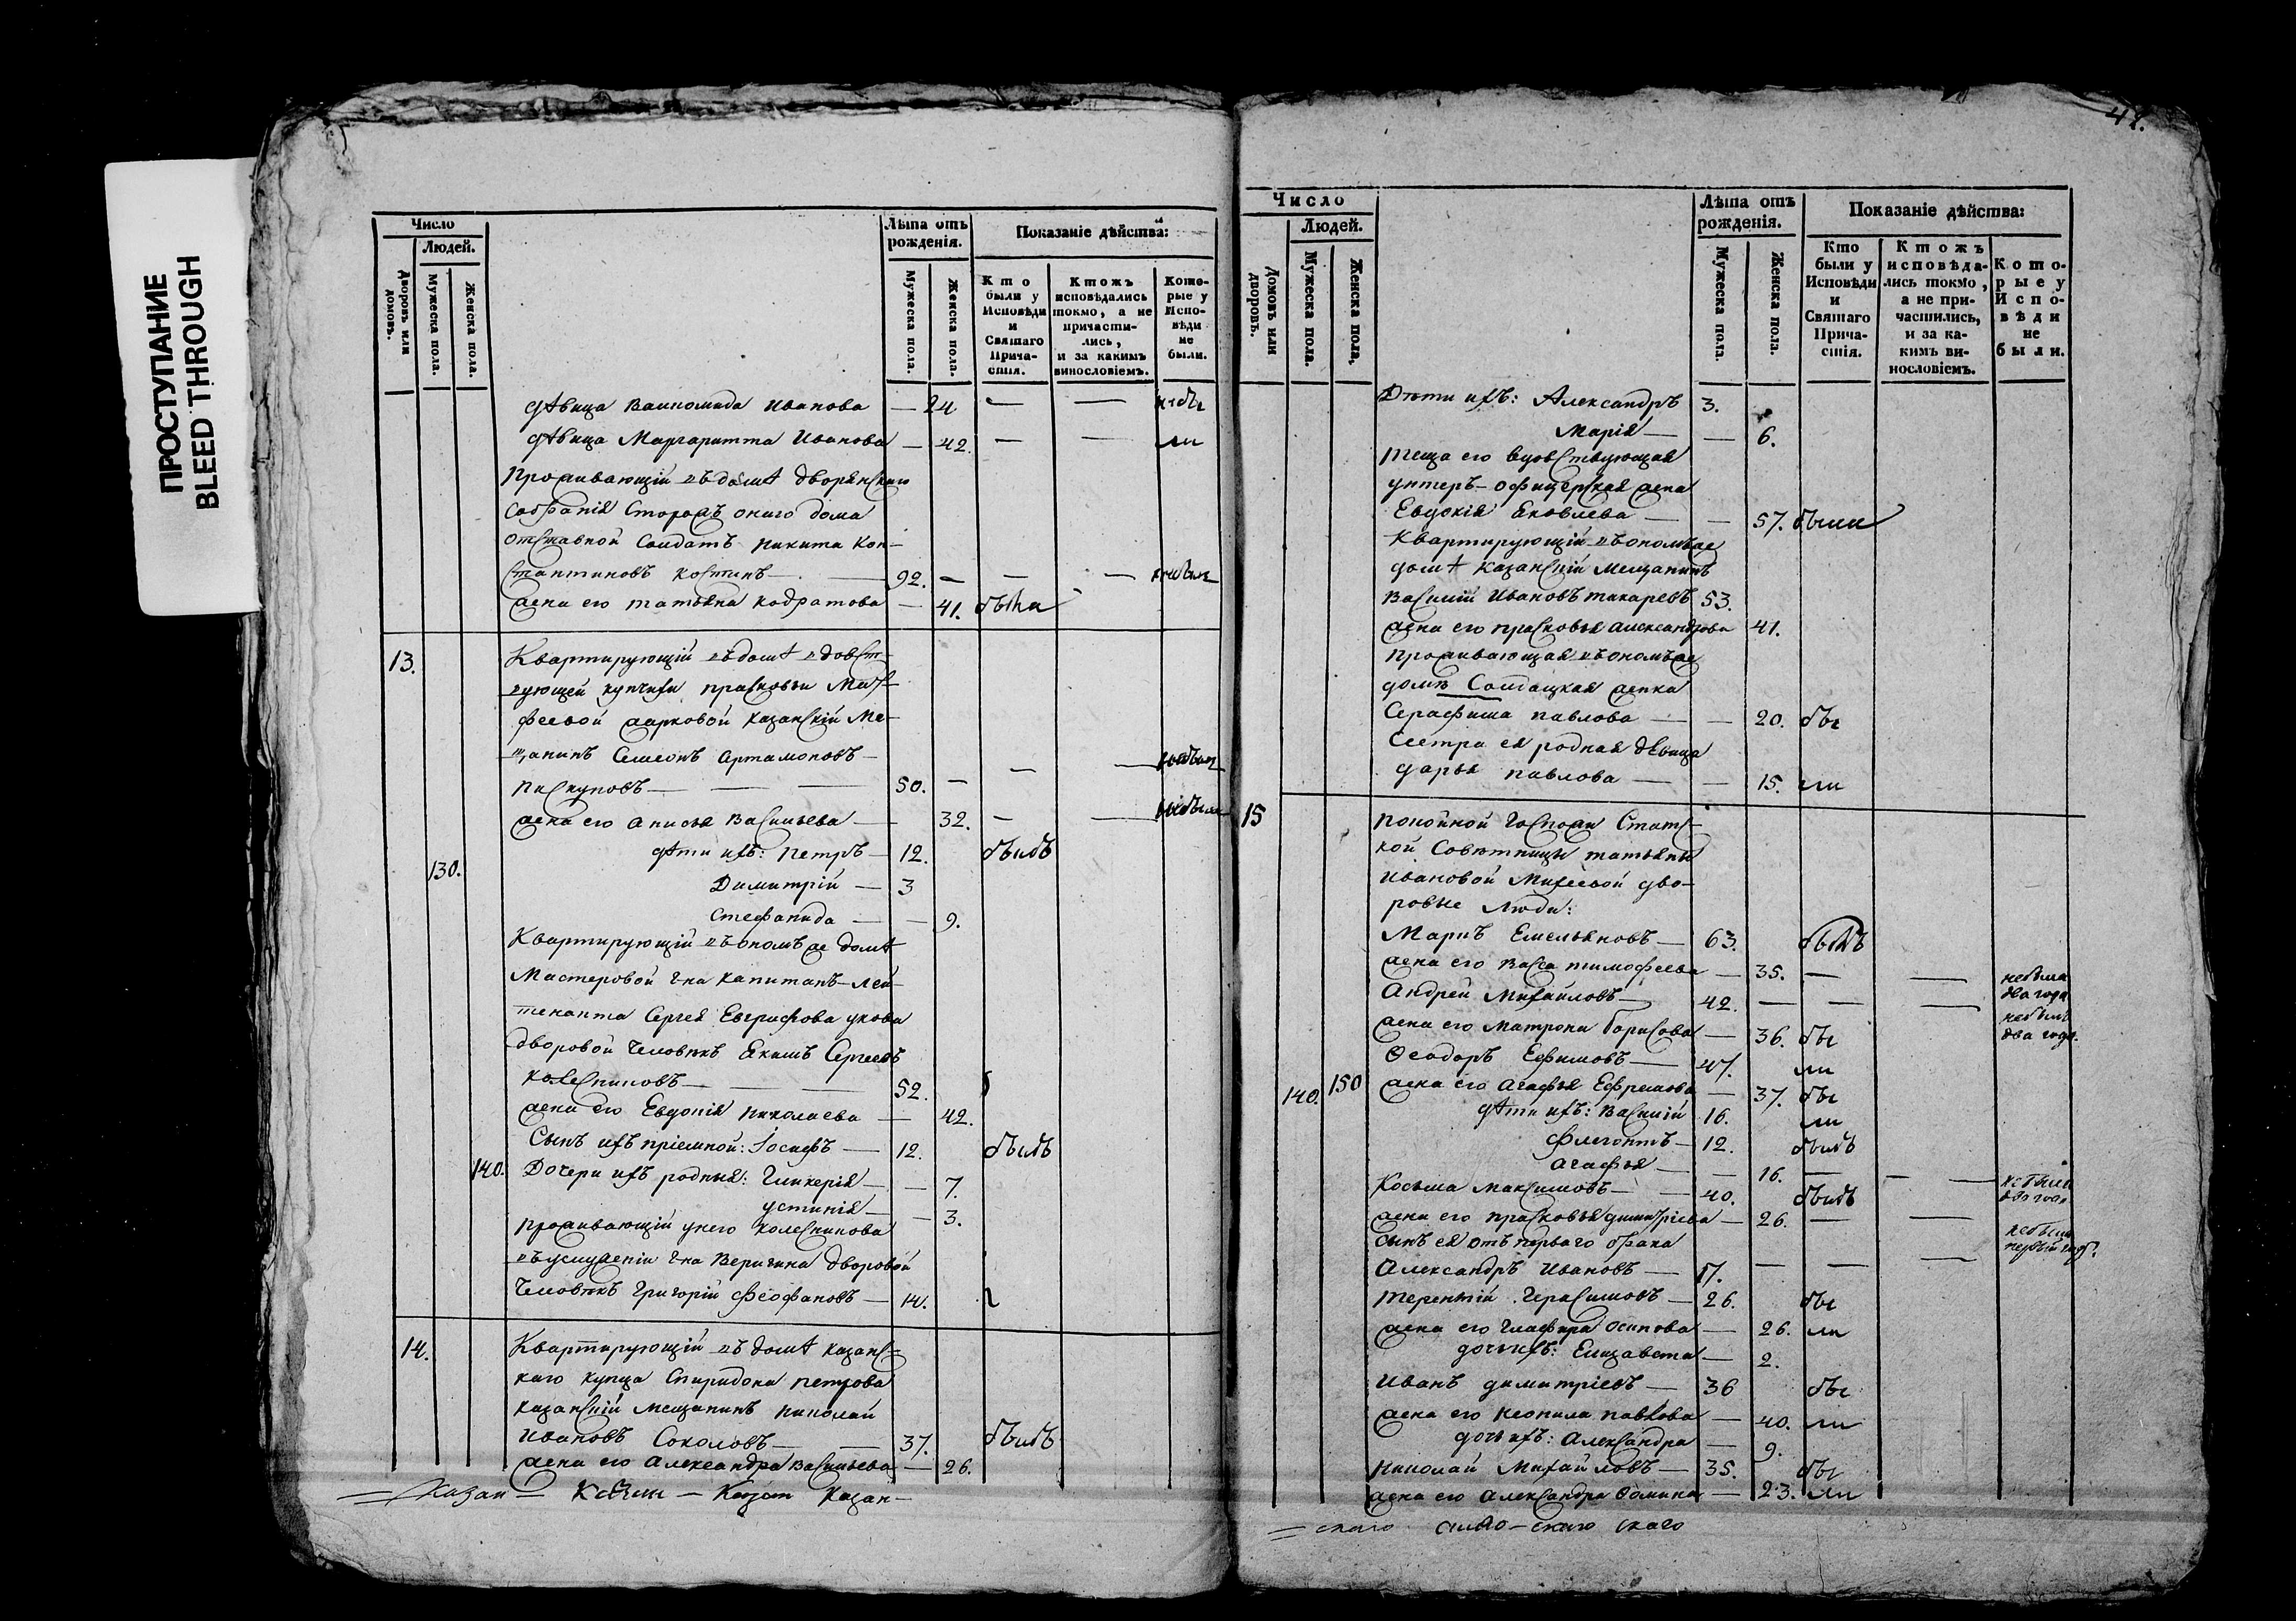 ПРОСТУПАНИЕ
BLEED THROUGH
Число
Людей.
Дворовъ или домовъ.
Мужеска пола.
Женска пола.
Лѣта отъ рожденія.
Мужеска пола.
Женска пола.
Показаніе дѣйства:
Кто были у Исповѣди и Святаго Причастія.
Ктожъ исповѣдались токмо, а не причастились, и за какимъ винословіемъ.
Которые у Исповѣди не были.
дѣвица Иванова — 24 — —
дѣвица Маргаритта Иванова — 42. — — ли
Проживающій въ домѣ дворянскаго
собранія сторожъ онаго дома
отставной солдатъ Никита Кон-
стантиновъ Костинъ — 92. — — —
жена его Татьяна Кодратова — 41. была
13. Квартирующій въ домѣ вдовст-
вующей купчихи Прасковьи Мат-
феевой Жарковой Казанскій Ме-
щанинъ Симеонъ Артамоновъ
Пискуновъ — 50. — — —
жена его Анисья Васильева — 32. — —
дѣти ихъ: Петръ — 12. былъ
130. Димитрій — 3
Стефанида — — 9.
Квартирующій въ ономъ же домѣ
Мастеровой г-на Капитанъ-Лей-
тенанта Сергея Евграфова
дворовой человѣкъ Екимъ Сергеевъ
Колесниковъ — 52. б
жена его Евдокія Николаева — 42.
Сынъ ихъ пріемной: Іосифъ — 12. былъ
140. Дочери ихъ родныя: Гликерія — — 7.
Устинія — — 3.
Проживающій у него Колесникова
въ услуженіи г-на Веригина дворовой
человѣкъ Григорій Феофановъ — 14.
14. Квартирующій въ домѣ Казанс-
каго купца Спиридона Петрова
Казанскій мещанинъ Николай
Ивановъ Соколовъ — 37. былъ
жена его Александра Васильева — 26.
Казан — — Казан-
47.
Число
Людей.
Домовъ или дворовъ.
Мужеска пола.
Женска пола,
Лѣта отъ рожденія.
Мужеска пола.
Женска пола.
Показаніе дѣйства:
Кто были у Исповѣди и Святаго Причастія.
Ктожъ исповѣдались токмо, а не причастились, и за какимъ винословіемъ.
Которые у Исповѣди не были.
Дѣти ихъ: Александръ 3.
Марія — — 6.
Теща его вдовствующая
унтеръ-офицерская жена
Евдокія Яковлева — — 57. были
Квартирующій въ ономъ же
домѣ Казанскій Мещанинъ
Василій Ивановъ Токаревъ 53.
жена его Прасковья Александрова 41.
Проживающая въ ономъ же
домѣ Солдацкая женка
Серафима Павлова — — 20. бы
Сестра ея родная дѣвица
Дарья Павлова — — 15. ли
15 Покойной Госпожи Статс-
кой Совѣтницы Татьяны
Ивановой Михеевой дво-
ровые люди:
Маркъ Емельяновъ — 63. былъ
жена его Васса Тимофеева — 35. — — небыла два года
Андрей Михайловъ — 42. — — — небылъ два года.
жена его Матрона Борисова — 36. бы
Феодоръ Ефимовъ — 47. ли
140. 150 жена его Агафья Ефремова — 37. бы
дѣти ихъ: Василій 16. ли
Флегонтъ — 12. былъ
Агафья — — 16. — — — небыла два года
Косьма Максимовъ — 40. былъ
жена его Прасковья Димитріева — 26. — — небыла первый годъ.
сынъ ея отъ перваго брака
Александръ Ивановъ — 17. — — —
Терентій Герасимовъ — 26. бы
жена его Глафира Осипова — 26. ли
дочь ихъ: Елизавета — 2.
Иванъ Димитріевъ — 36 бы
жена его Неонила Павлова — 40. ли
дочь ихъ: Александра — 9.
Николай Михайловъ — 35. бы
жена его Александра Фомина — 23. ли
— скаго — скаго скаго